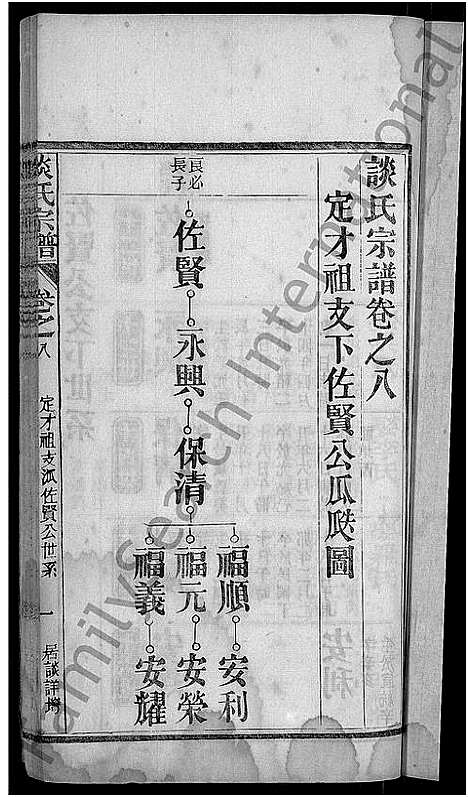 談氏宗譜卷之八
定才祖支下佐賢公瓜瓞圖
良必
長子
佐賢
永興
保清
福順
安利
福元
安榮
福義
安耀
談氏宗譜
卷之八
定才祖支派佐賢公世系
一
FamilySearch International